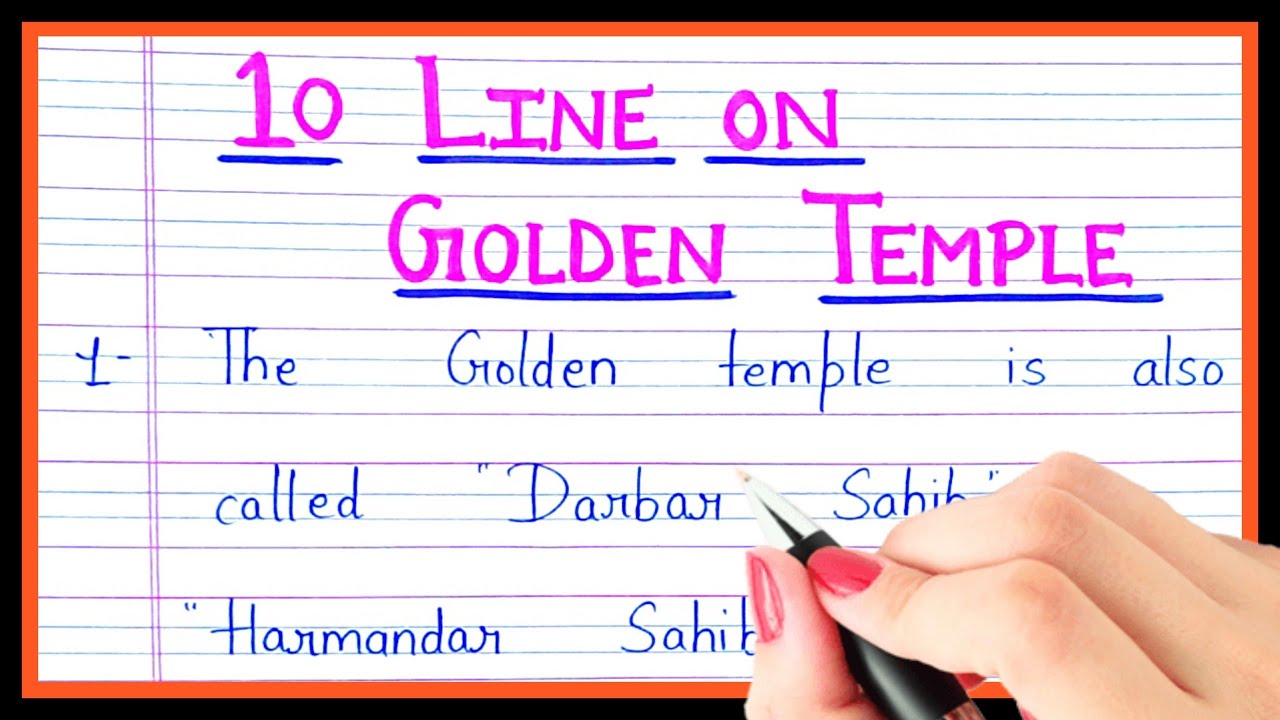 10 LINE ON
GOLDEN TEMPLE
1- The Golden temple is also
called "Darbar Sahib"
"Harmandar Sahib